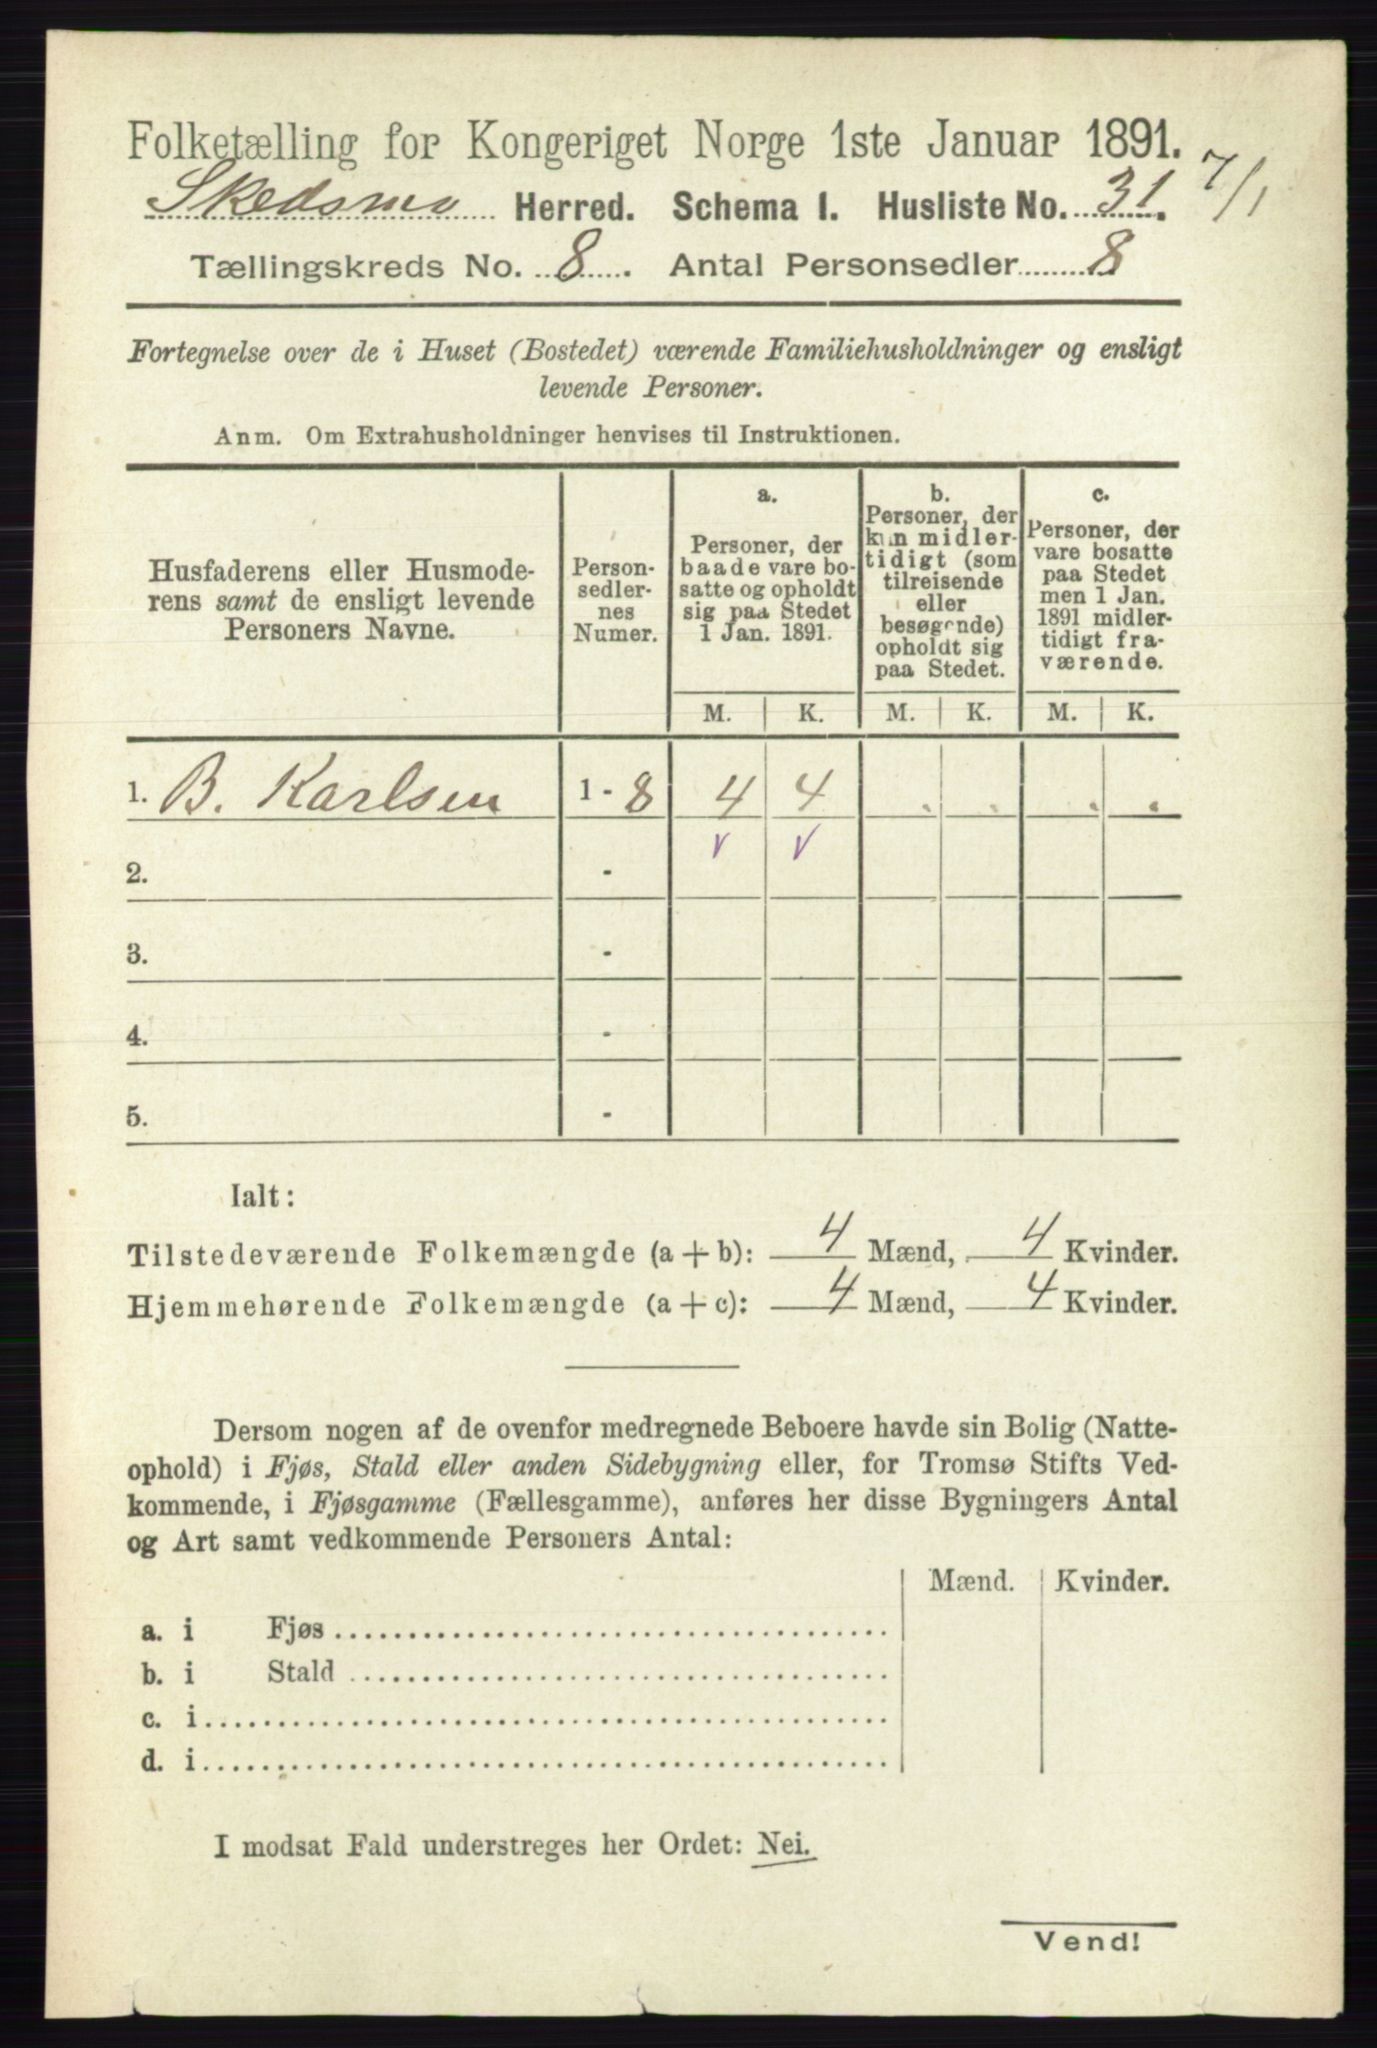 Folketælling for Kongeriget Norge 1ste Januar 1891.
7/1
Skedsmo Herred. Schema I. Husliste No. 31.
Tællingskreds No. 8. Antal Personsedler 8
Fortegnelse over de i Huset (Bostedet) værende Familiehusholdninger og ensligt
levende Personer.
Anm. Om Extrahusholdninger henvises til Instruktionen.
Husfaderens eller Husmode-
rens samt de ensligt levende
Personers Navne.
Person-
sedler-
nes
Numer.
a.
Personer, der
baade vare bo-
satte og opholdt
sig paa Stedet
1 Jan. 1891.
b.
Personer, der
kun midler-
tidigt (som
tilreisende
eller
besøgende)
opholdt sig
paa Stedet.
c.
Personer, der
vare bosatte
paa Stedet
men 1 Jan.
1891 midler-
tidigt fra-
værende.
M. K. M. K. M. K.
1. B. Karlsen 1 - 8 4 4 . . . .
v v
2. -
3. -
4. -
5. -
Ialt:
Tilstedeværende Folkemængde (a + b): 4 Mænd, 4 Kvinder.
Hjemmehørende Folkemængde (a + c): 4 Mænd, 4 Kvinder.
Dersom nogen af de ovenfor medregnede Beboere havde sin Bolig (Natte-
ophold) i Fjøs, Stald eller anden Sidebygning eller, for Tromsø Stifts Ved-
kommende, i Fjøsgamme (Fællesgamme), anføres her disse Bygningers Antal
og Art samt vedkommende Personers Antal:
Mænd. Kvinder.
a. i Fjøs
b. i Stald
c. i
d. i
I modsat Fald understreges her Ordet: Nei.
Vend!